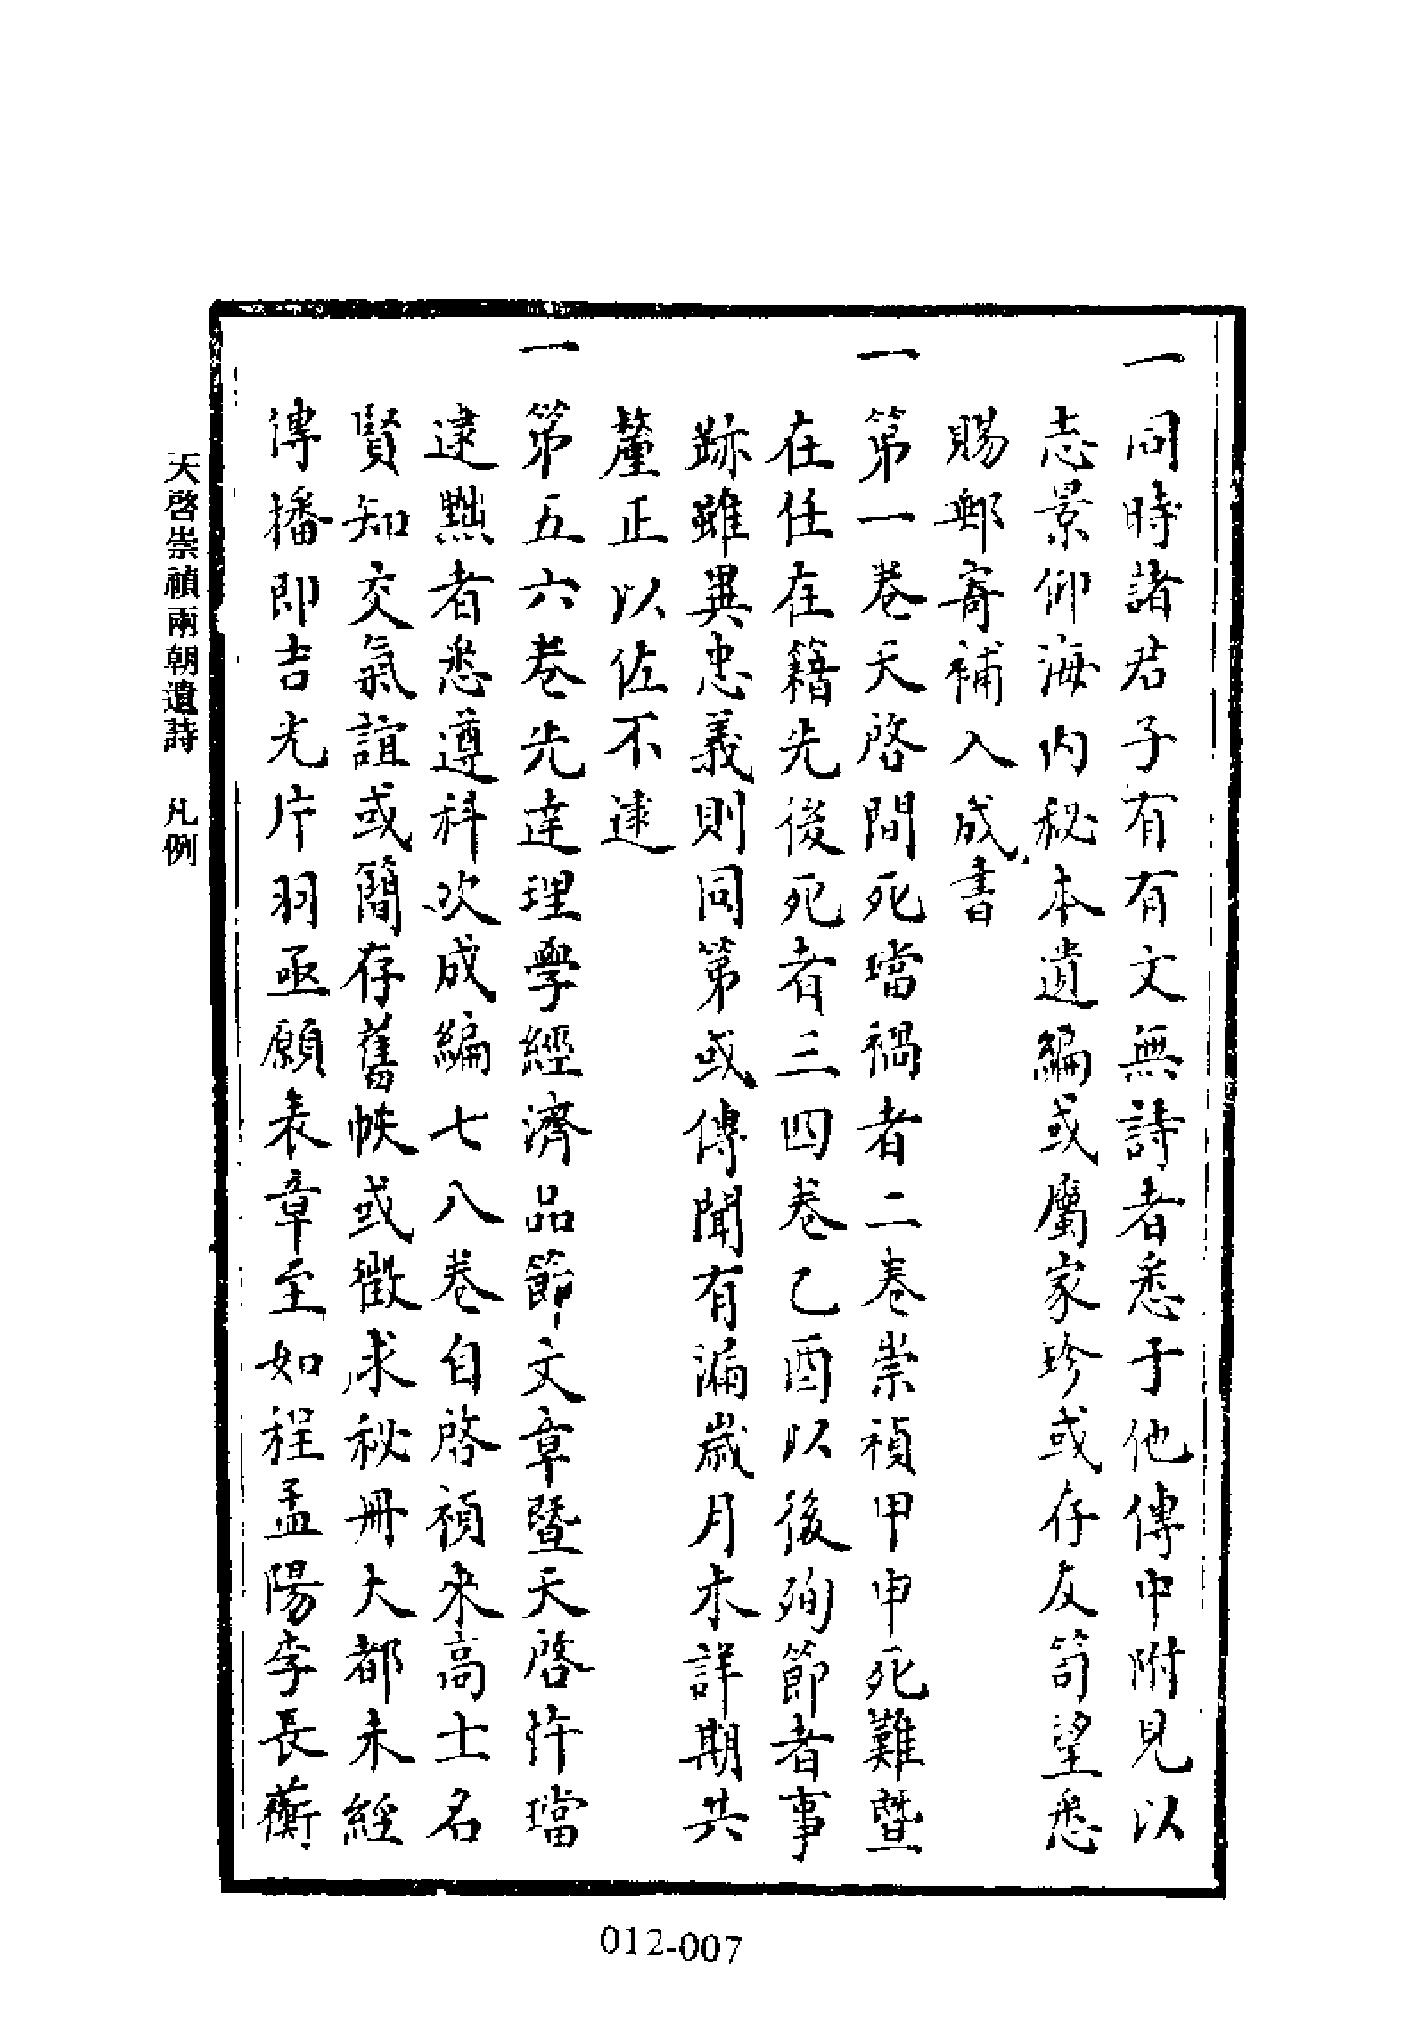 一同時諸君子有有文無詩者悉于他傳中附見以
志景仰海內秘本遺編或屬家珍或存友笥望悉
賜郵寄補入成書
一第一卷天啓間死璫禍者二卷崇禎甲申死難暨
在任在籍先後死者三四卷乙酉以後殉節者事
跡雖異忠義則同第或傳聞有漏歲月未詳期共
釐正以佐不逮
一第五六卷先達理學經濟品節文章暨天啓忤璫
逮黜者悉遵科次成編七八卷自啓禎來高士名
賢知交氣誼或簡存舊帙或徵求秘冊大都未經
傳播即吉光片羽亟願表章至如程孟陽李長蘅
天啓崇禎兩朝遺詩 凡例
012-007